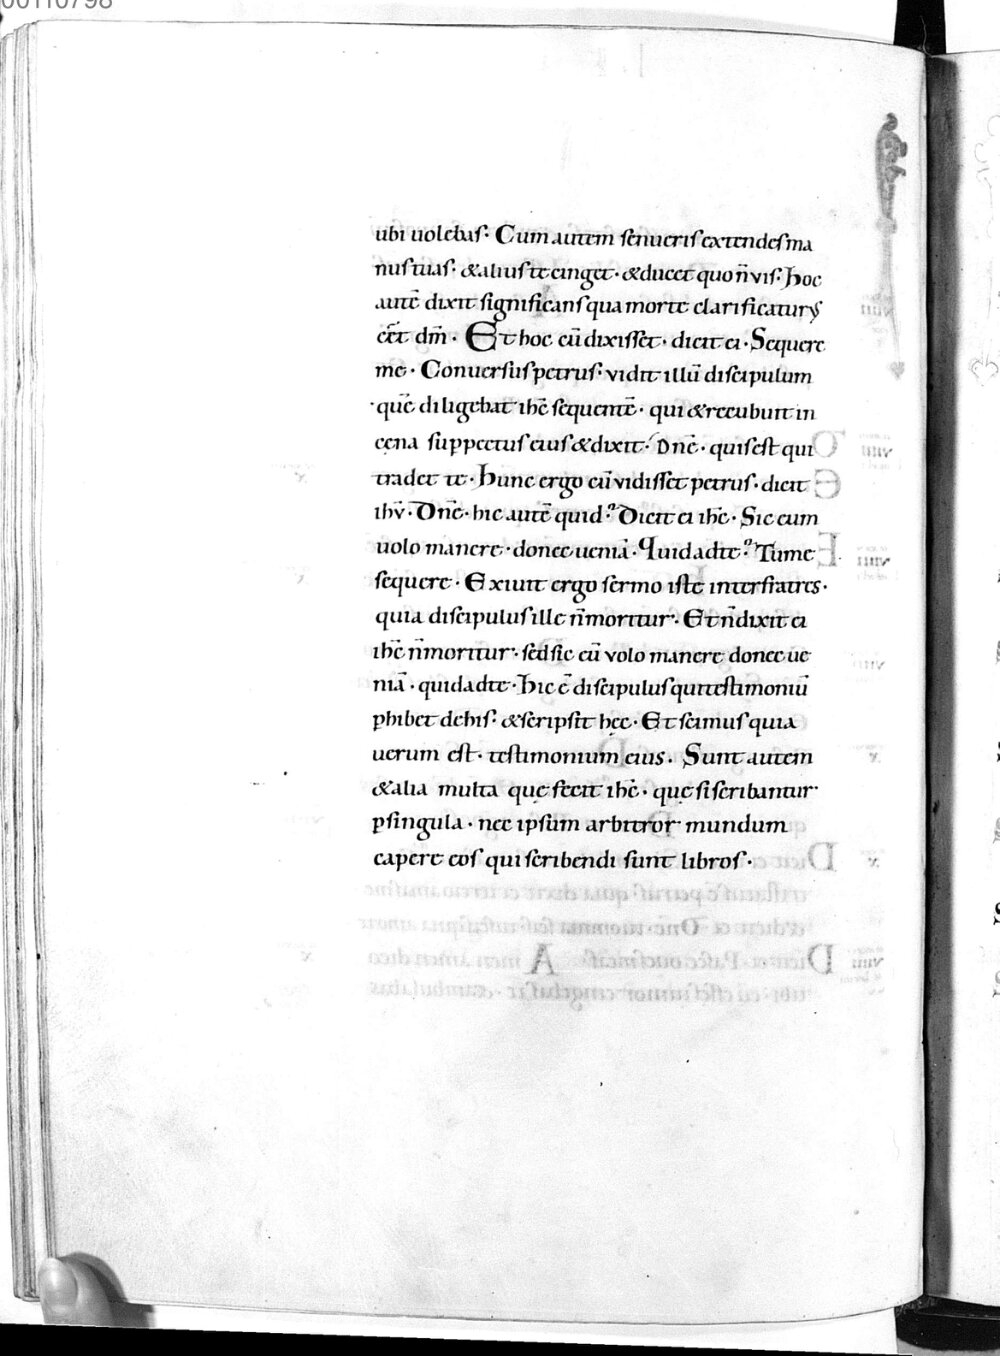 00110798
ubi uolebas· Cum autem senueris extendes ma
nus tuas· &alius te cinget· &ducet quo n̄ vis· Hoc
autē dixit significans qua morte clarificaturꝰ
eēt dm̄· Et hoc cū dixisset· dicit ei· Sequere
me· Conuersus petrus· vidit illū discipulum
quē diligebat ihc̄ sequentē· qui &recubuit in
cęna suppectus eius &dixit· Dnē· quis est qui
tradet te· Hunc ergo cū vidisset petrus· dicit
ihv̄· Dnē· hic autē quid? Dicit ei ihc̄· Sic eum
uolo manere· donec ueniā· Quid ad te? Tu me
sequere· Exiuit ergo sermo iste inter fratres·
quia discipulus ille n̄ moritur· Et n̄ dixit ei
ihc̄ n̄ moritur· sed sic eū volo manere donec ue
niā· quid ad te· Hic ē discipulus qui testimoniū
phibet de his· &scripsit hęc· Et scimus quia
uerum est· testimonium eius· Sunt autem
&alia multa quę fecit ihc̄· quę si scribantur
p singula· nec ipsum arbitror mundum
capere eos qui scribendi sunt libros·